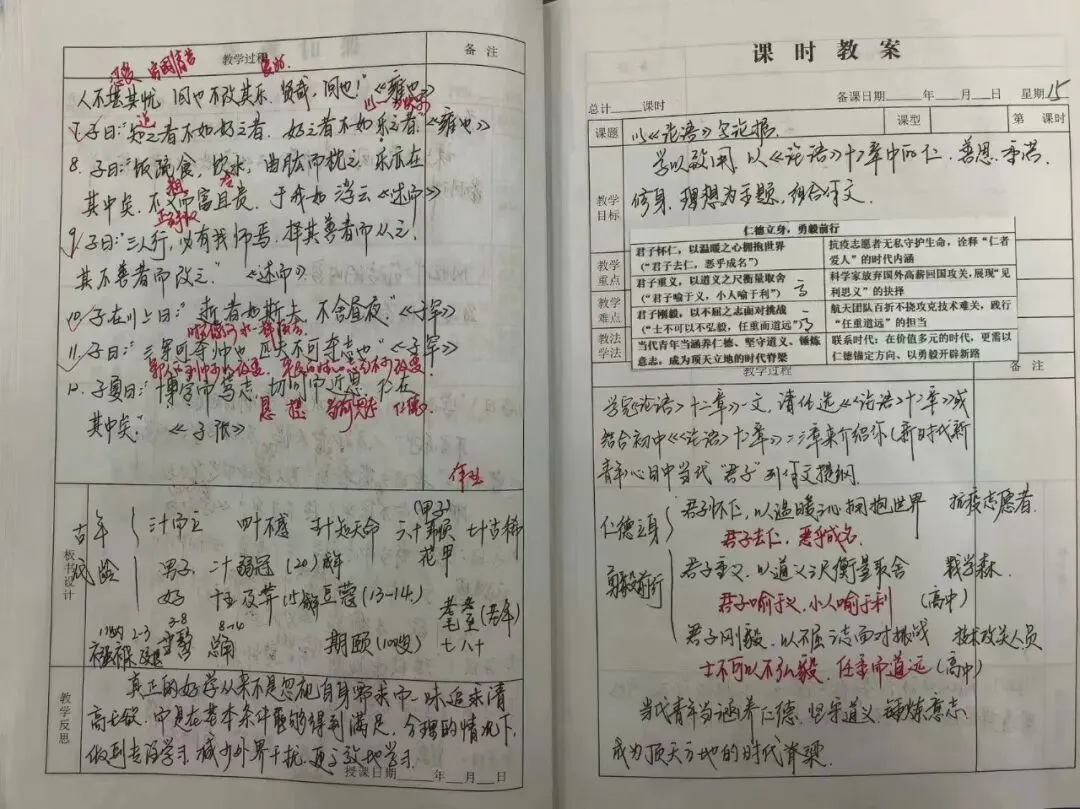 教学过程
备 注
人不堪其忧，回也不改其乐，贤哉，回也！"《雍也》
7.子曰："知之者不如好之者，好之者不如乐之者。"《雍也》
8. 子曰："饭疏食，饮水，曲肱而枕之，乐亦在
粗
其中矣，不义而富且贵，于我如浮云《述而》
正当手段
9.子曰："三人行，必有我师焉，择其善者而从之，
其不善者而改之。" 《述而》
10.子在川上曰："逝者如斯夫，不舍昼夜。"《子罕》
11.子曰："三军可夺帅也，匹夫不可夺志也。"《子罕》
12.子夏曰："博学而笃志，切问而近思，仁在
其中矣。" 《子张》
板书设计
古 年
龄
三十而立 四十不惑 五十知天命 六十耳顺 七十古稀
(甲子)
花甲
男子 二十弱冠 (20) 成年
十五及笄 15 豆蔻 (13-14)
2-3
3-8
8-14
期颐 (100岁)
七八十
(老年)
教学反思
真正的好学从来不是忽视自身需求，一味追求清
高，而是在基本条件能够得到满足，合理的情况下，
做到专注学习，减少外界干扰，更高效地学习。
授课日期 年 月 日
课 时 教 案
总计 课时
备课日期 年 月 日 星期
15
课题
以《论语》
课型
第 课时
教学目标
学以致用，以《论语》十二章中的仁、善思、
修身、理想为主题，组合作文。
教学重点
教学难点
教法学法
仁德立身，勇毅前行
君子怀仁，以温暖之心拥抱世界（"君子去仁，恶乎成名"）
抗疫志愿者无私守护生命，诠释"仁者爱人"的时代内涵
君子重义，以道义之尺衡量取舍（"君子喻于义，小人喻于利"）
科学家放弃国外高薪回国攻关，展现"见利思义"的抉择
君子刚毅，以不屈之志面对挑战（"士不可以不弘毅，任重而道远"）
航天团队百折不挠攻克技术难关，践行"任重道远"的担当
当代青年当涵养仁德、坚守道义、锤炼意志，成为顶天立地的时代脊梁
联系时代：在价值多元的时代，更需以仁德锚定方向、以勇毅开辟新路
教学过程
备 注
学完《论语》十二章一文，请任选《论语》十二章或
结合初中《论语》十二章二三章来介绍你(新时代新
青年)心目中当代"君子"列作文提纲。
仁德立身
勇毅前行
君子怀仁，以温暖之心拥抱世界 抗疫志愿者
君子去仁，恶乎成名。
君子重义，以道义之尺衡量取舍 钱学森
君子喻于义，小人喻于利 (高中)
君子刚毅，以不屈之志面对挑战 技术攻关人员
士不可以不弘毅，任重而道远 (高中)
当代青年当涵养仁德、坚守道义、锤炼意志，
成为顶天立地的时代脊梁。